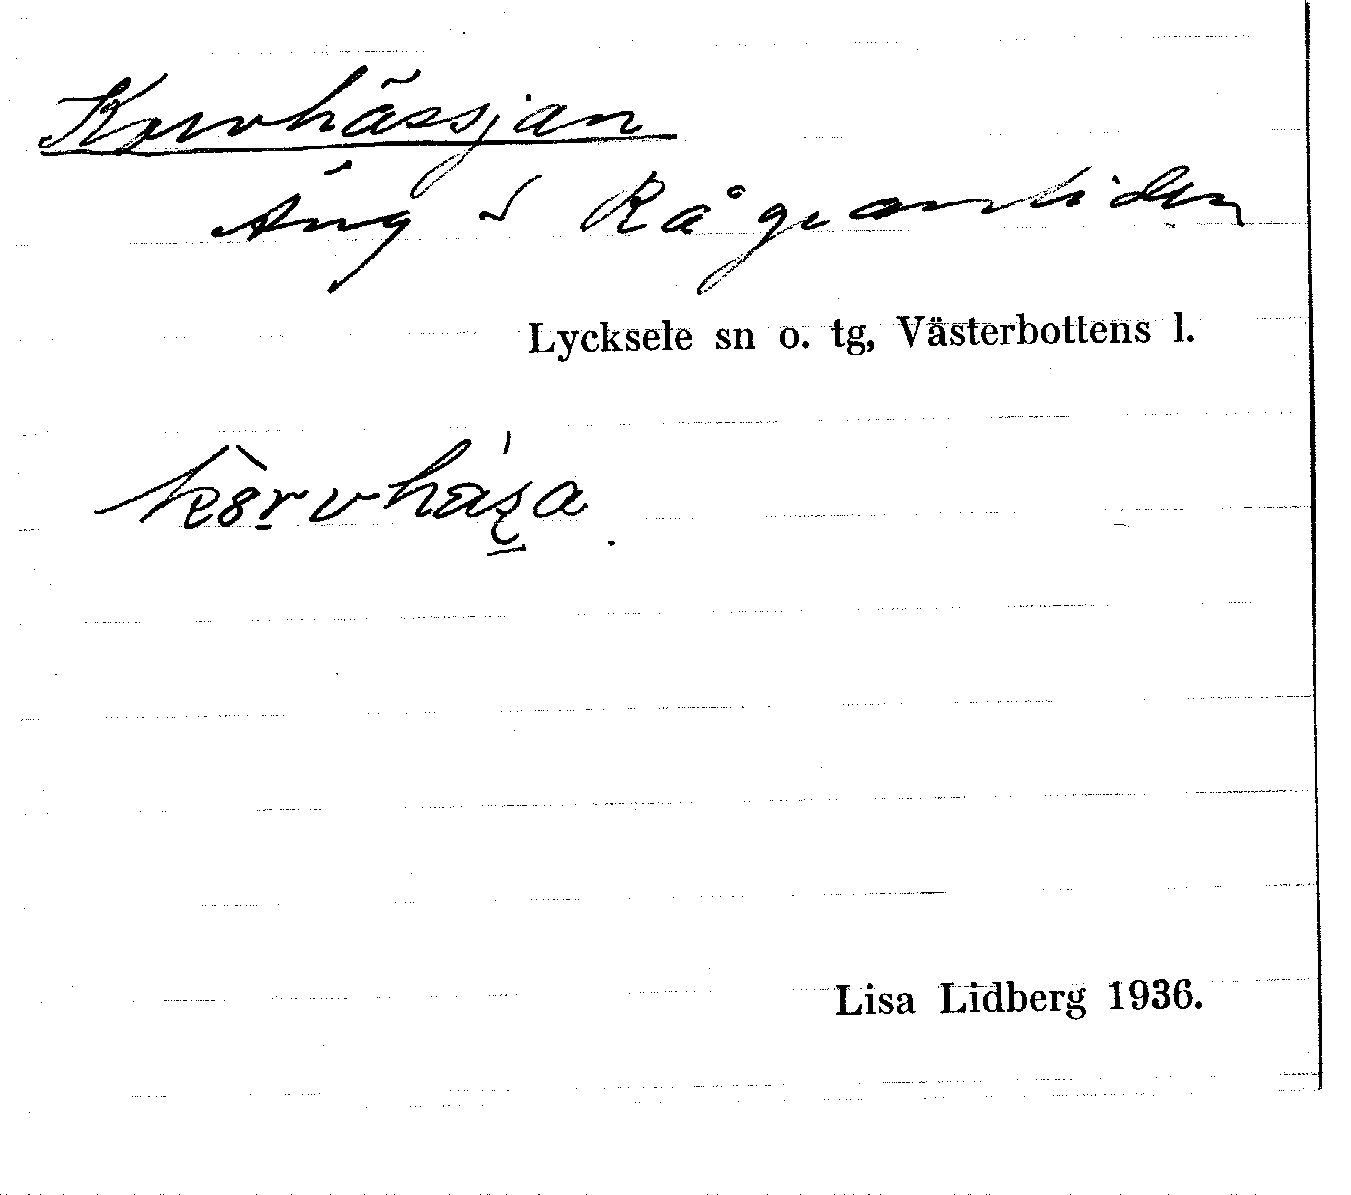 Korvhässjan
Äng i Rågranliden
Lycksele sn o. tg, Västerbottens l.
Lisa Lidberg 1936.